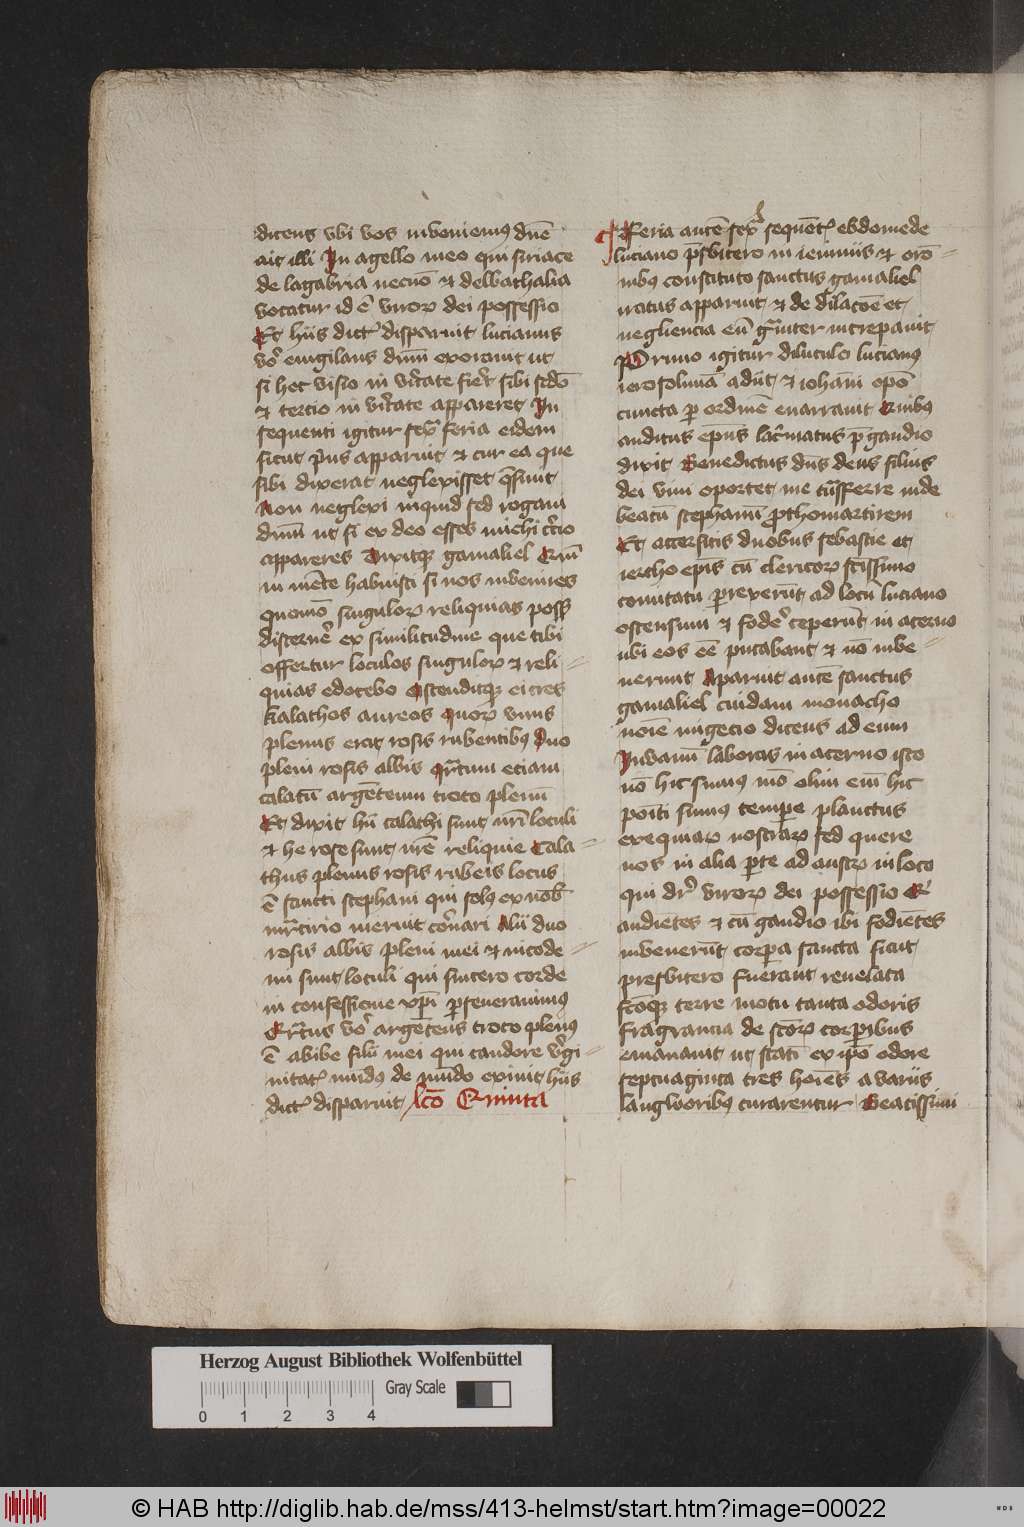 dicens vbi vos inveniemus dn̄e
ait illi In agello meo qui siriace
de lagabria necnō et delbathalia
vocatur id ē viroꝝ dei possessio
Et hiis dict' disparuit lucianus
vō evigilans dn̄m exoravit ut
si hec visio in v'itate fier̄t sibi sc̄do
et tertio in v'itate appareret In
sequenti igitur sexͣ feria eidem
sicut p̄us apparuit et cur ea que
sibi dixerat neglexisset q̄siuit
Non neglexi inquid sed rogavi
dn̄m ut si ex deo esses michi t'cio
appareres Dixitqꝫ gamaliel Qm̄
in mēte habuisti si nos invenires
quomō singuloꝝ reliquias poss̄
discernē ex similitudine que tibi
offertur loculos singuloꝝ et reli-
quias edocebo Ostenditqꝫ ei tres
kalathos aureos Quoꝝ vnus
plenus erat rosis rubentibꝰ Duo
pleni rosis albis Qͣrtum etiam
calatū argēteum croco plenū
Et dixit hii calathi sunt nr̄i loculi
et he rose sunt nr̄e reliquie Cala-
thus plenus rosis rubeis locus
ē sancti stephani qui solꝰ ex nob̄
mr̄tirio meruit cōnari Alii duo
rosis albis pleni mei et nicode-
mi sunt loculi qui sincero corde
in confessione xp̄i p̄severavimꝰ
Qr̄tus vō argēteus croco plenꝰ
ē abibe filii mei qui candore v'gi-
nitatꝭ mūdꝰ de mūdo exivit hiis
dict' disparuit lcō Quinta
Feria autē sexͣ sequētꝭ ebdomede
luciano p̄sbitero in ieiuniis et orō-
nibꝰ constituto sanctus gamaliel
iratus apparuit et de dilacōe et
negligencia eū gͣviter increpavit
Primo igitur diluculo lucianꝰ
ierosolimā adiit et iohāni ep̄o
cuncta p̄ ordinē enarravit Quibꝰ
auditus ep̄us lac'matus p̄ gaudio
dixit Benedictus dn̄s deus filius
dei vivi oportet me trāsferre inde
beatū stephanū prothomartirem
Et accersitis duobus sebastie et
iericho ep̄is cū clericoꝝ sc̄issimo
comitatu p̄rexerūt ad locū luciano
ostensum et fodē ceperūt in acervo
ubi eos eē putabant et nō inve-
nerunt Aparuit autē sanctus
gamaliel cuidam monacho
noīe migecio dicens ad eum
Invanū laboras in acervo isto
nō hic sumꝰ mō olim enī hic
poīti sumus tempore planctus
exequiaꝝ nostraꝝ sed quere
nos in alia p̄te ad austꝝ in loco
qui dr̄ viroꝝ dei possessio Qd̄
audiētes et cū gaudio ibi fodiētes
invenerūt corp̄a sancta sicut
presbitero fuerant revelata
Fc̄oqꝫ terre motu tanta odoris
fragrancia de sc̄oꝝ corp̄ibus
emanavit ut statī ex ip̄o odore
septuaginta tres hoīes a variis
langworibꝰ curarentur Beatissimi
Herzog August Bibliothek Wolfenbüttel
Gray Scale
0 1 2 3 4
© HAB http://diglib.hab.de/mss/413-helmst/start.htm?image=00022
WDB